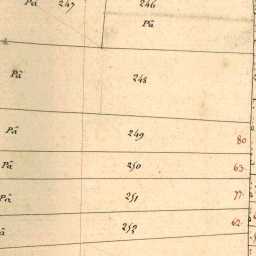 Pâ 247 246
Pâ
Pâ 248
Pâ 249 80
Pâ 250 63
Pâ 251 77
252 62